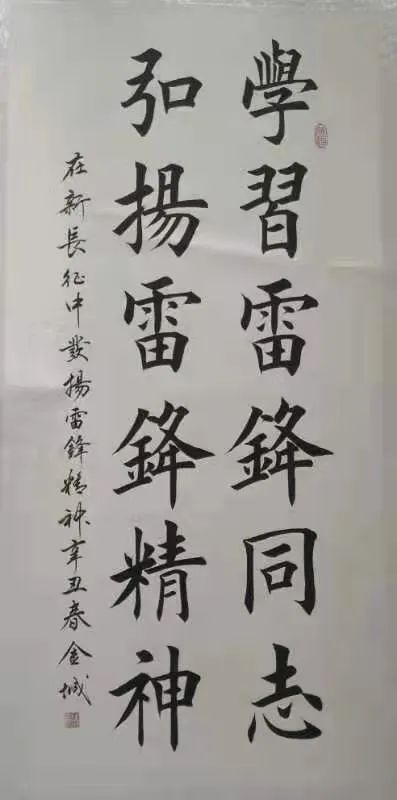 學習雷鋒同志
弘揚雷鋒精神
在新長征中發揚雷鋒精神辛丑春金城